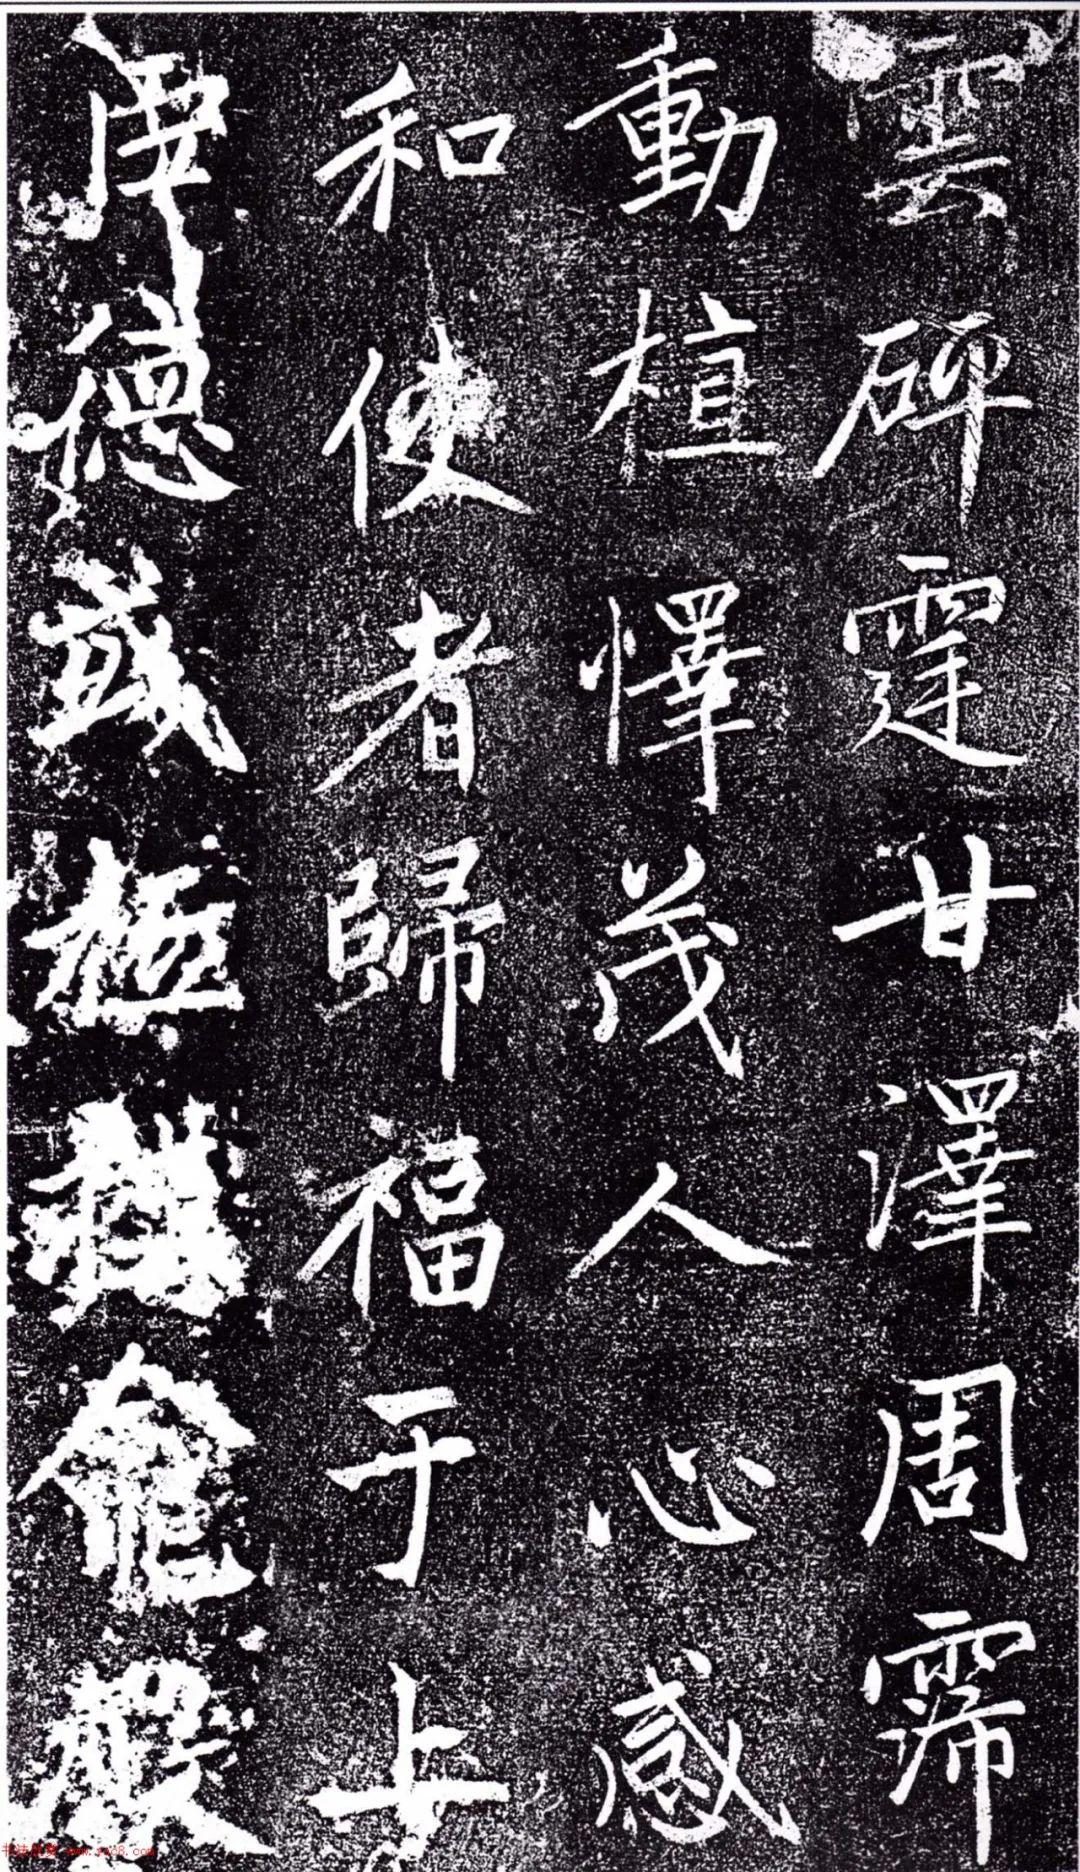 雲霆甘澤周霈
動植懌茂人心感
和使者歸福于上
德盛極